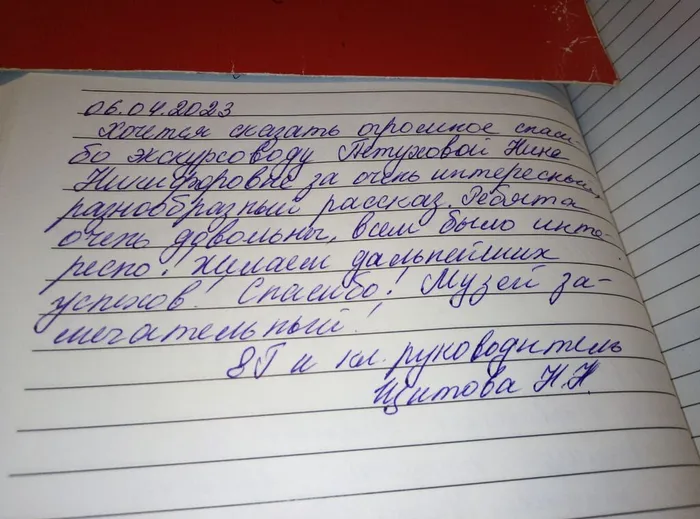 06.04.2023
Хочется сказать огромное спаси-
бо экскурсоводу Петуховой Нине
Никифоровне за очень интересный,
разнообразный рассказ. Ребята
очень довольны, всем было инте-
ресно! Желаем дальнейших
успехов! Спасибо! Музей за-
мечательный!
8Г и кл. руководитель
Щитова Н.Н.